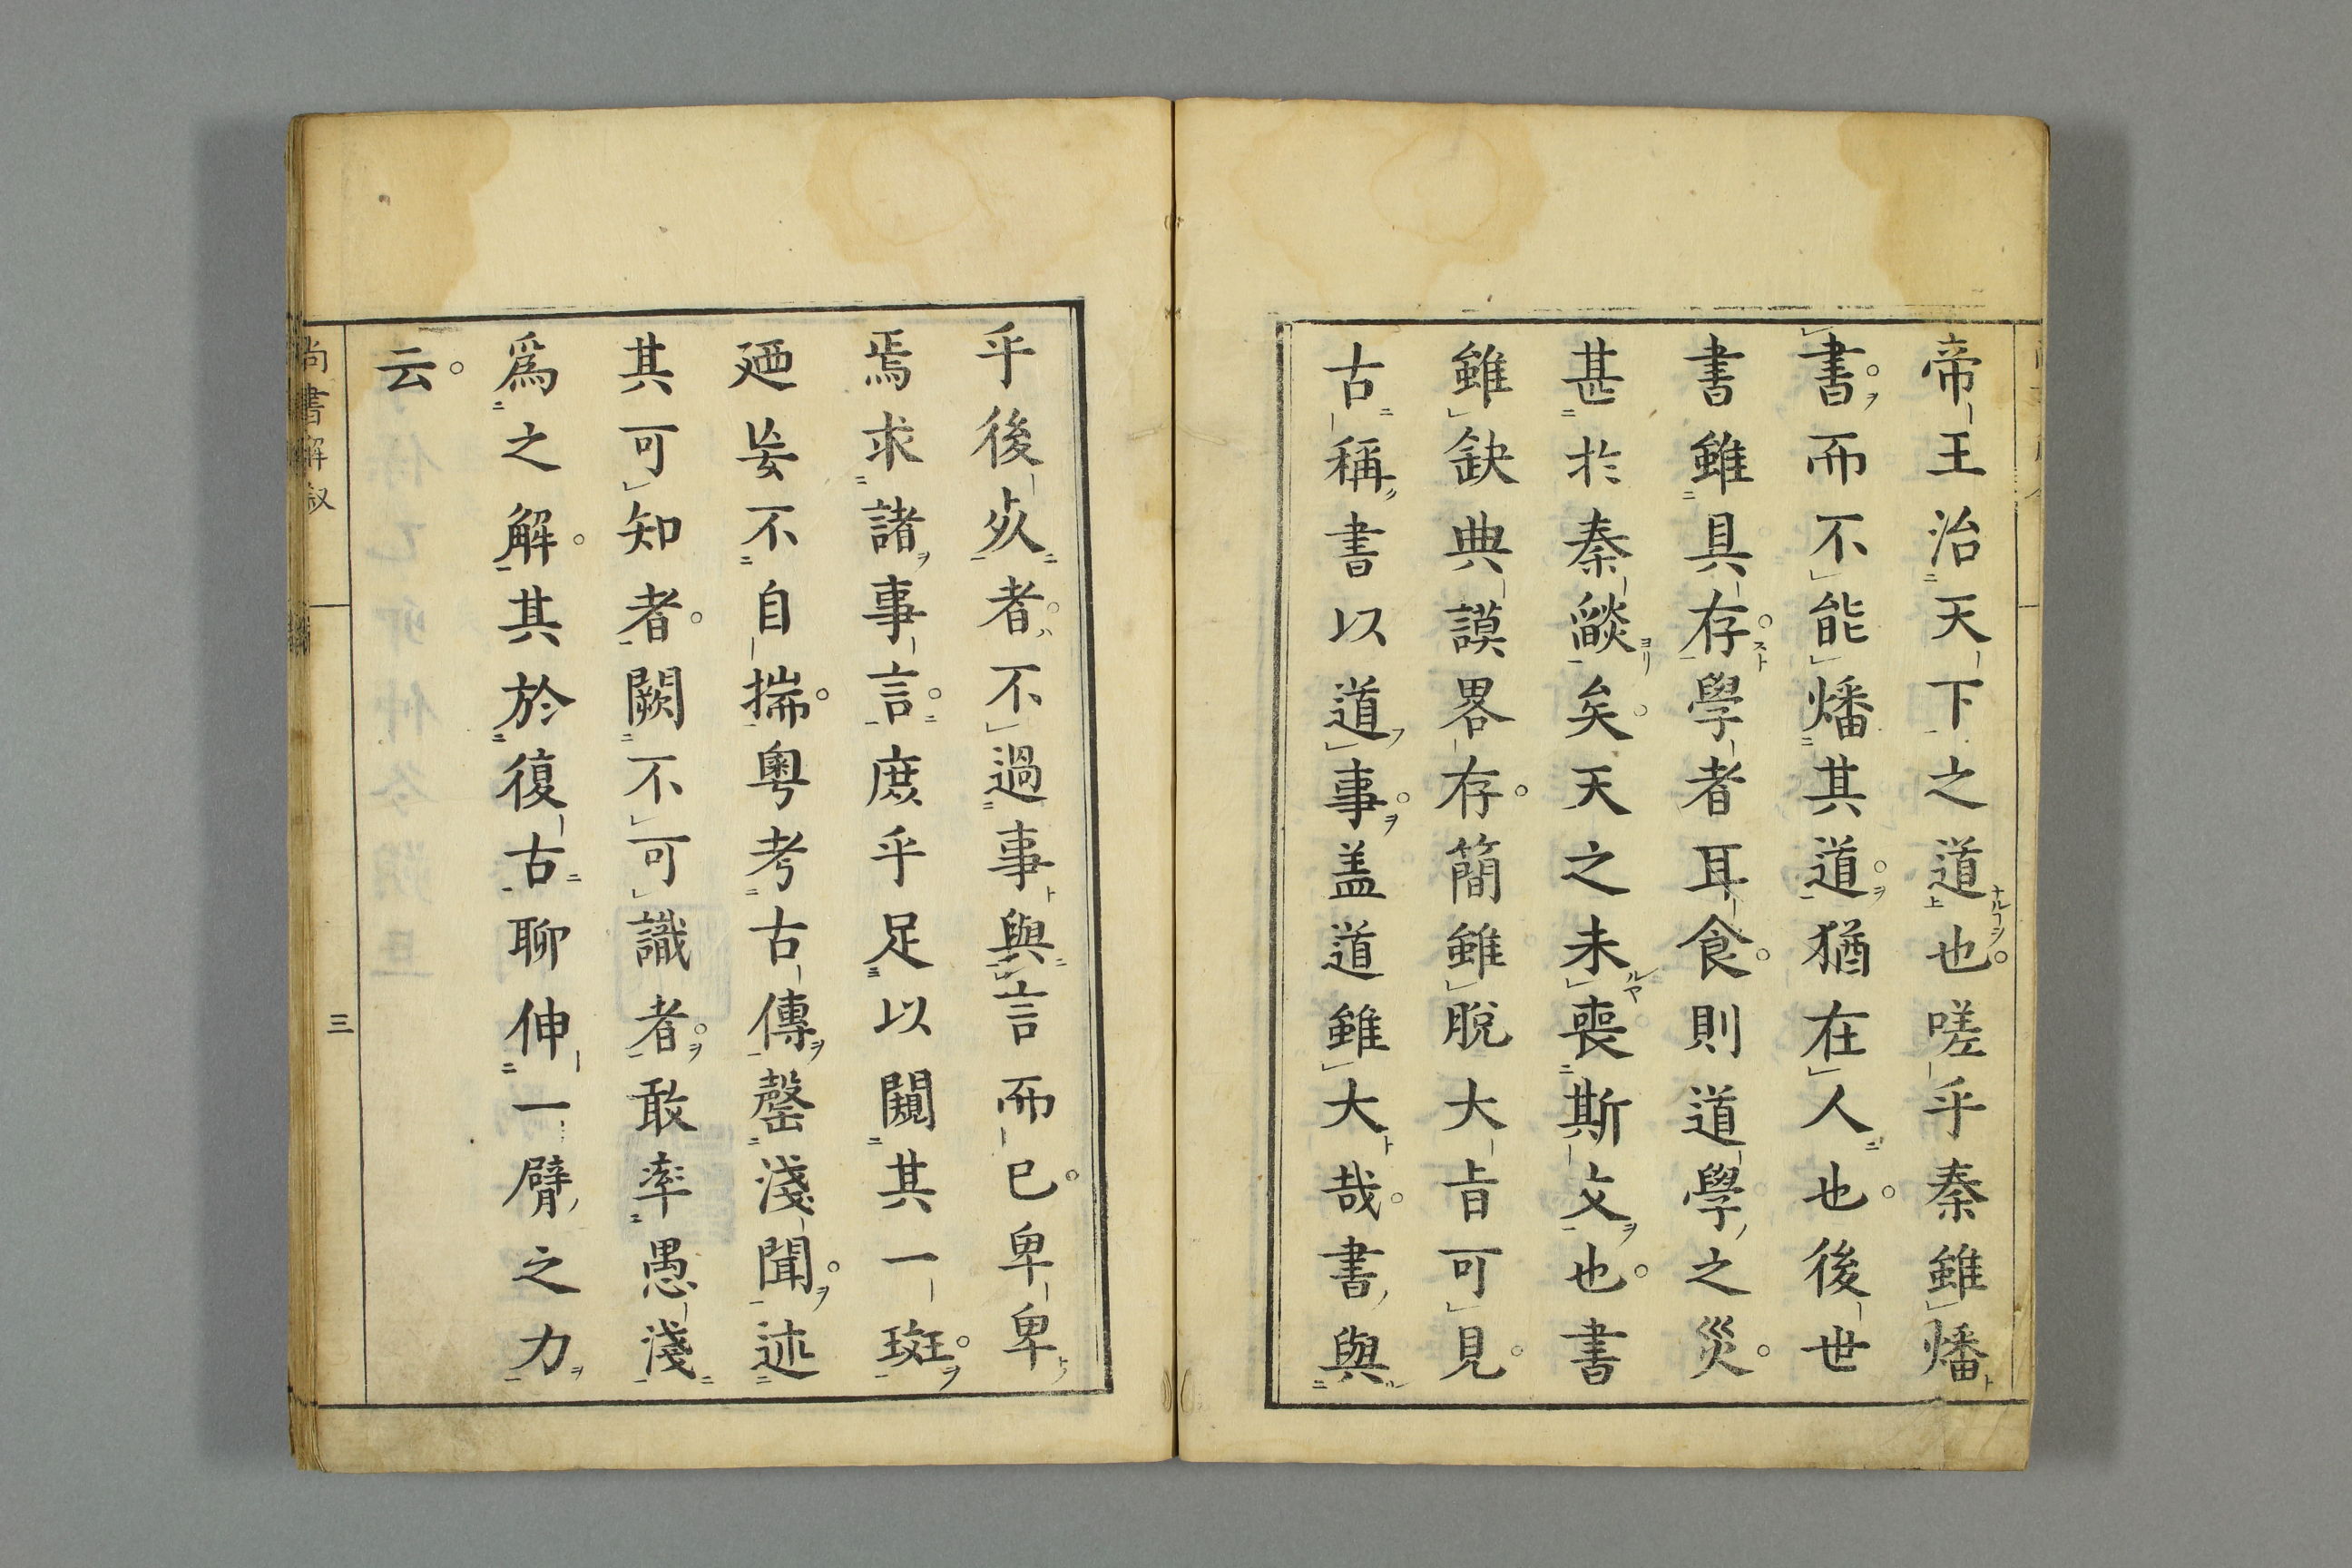 帝王治天下之道也嗟乎秦雖燔
書而不能燔其道猶在人也後世
書雖具存學者耳食則道學之災
甚於秦燄矣天之未喪斯文也書
雖缺典謨畧存簡雖脫大旨可見
古稱書以道事盖道雖大哉書與
乎後死者不過事與言而已卑卑
焉求諸事言庶乎足以闚其一斑
廼妄不自揣粵考古傳罄淺聞述
其可知者闕不可識者敢率愚淺
爲之解其於復古聊伸一臂之力
云
尚書解叙
三